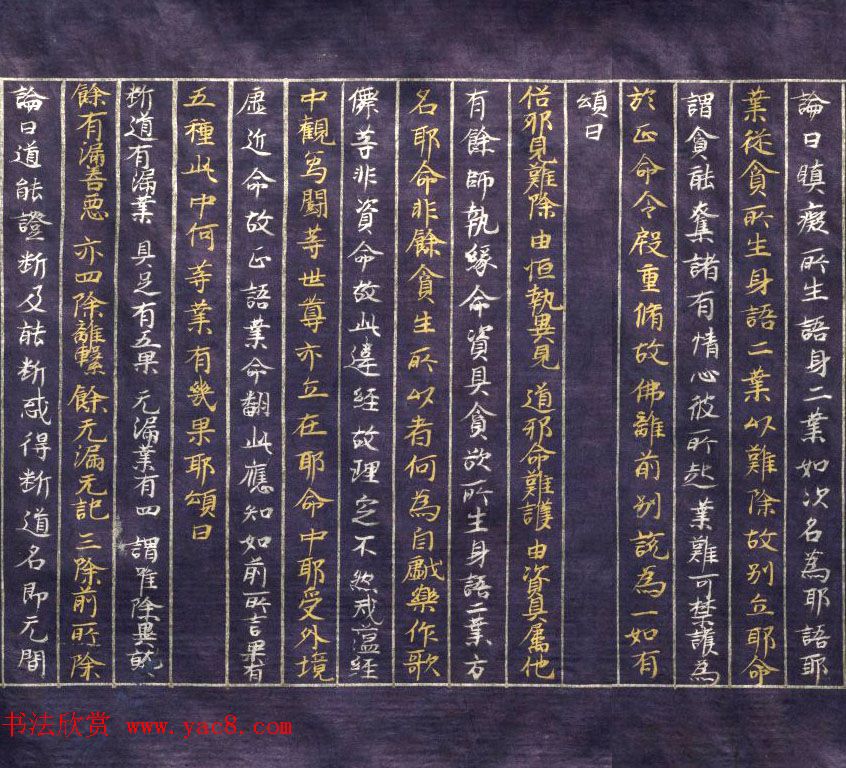 論曰瞋癡所生語身二業如次名為耶語耶
業從貪所生身語二業以難除故別立耶命
謂貪能奪諸有情心彼所起業難可禁護為
於正命令殷重脩故佛離前別說為一如有
頌曰
俗耶見難除 由恒執異見 道耶命難護 由資具属他
有餘師執緣命資具貪欲所生身語二業方
名耶命非餘貪生所以者何為自戲樂作歌
儛等非資命故此違經故理定不然戒蘊經
中觀鬪等世尊亦立在耶命中耶受外境
虛延命故正語業命翻此應知如前所言果有
五種此中何等業有幾果耶頌曰
断道有漏業 具足有五果 无漏業有四 謂唯除異熟
餘有漏善惡 亦四除離繫 餘无漏无記 三除前所除
論曰道能證断及能断惑得断道名即无間
书法欣赏 www.yac8.com